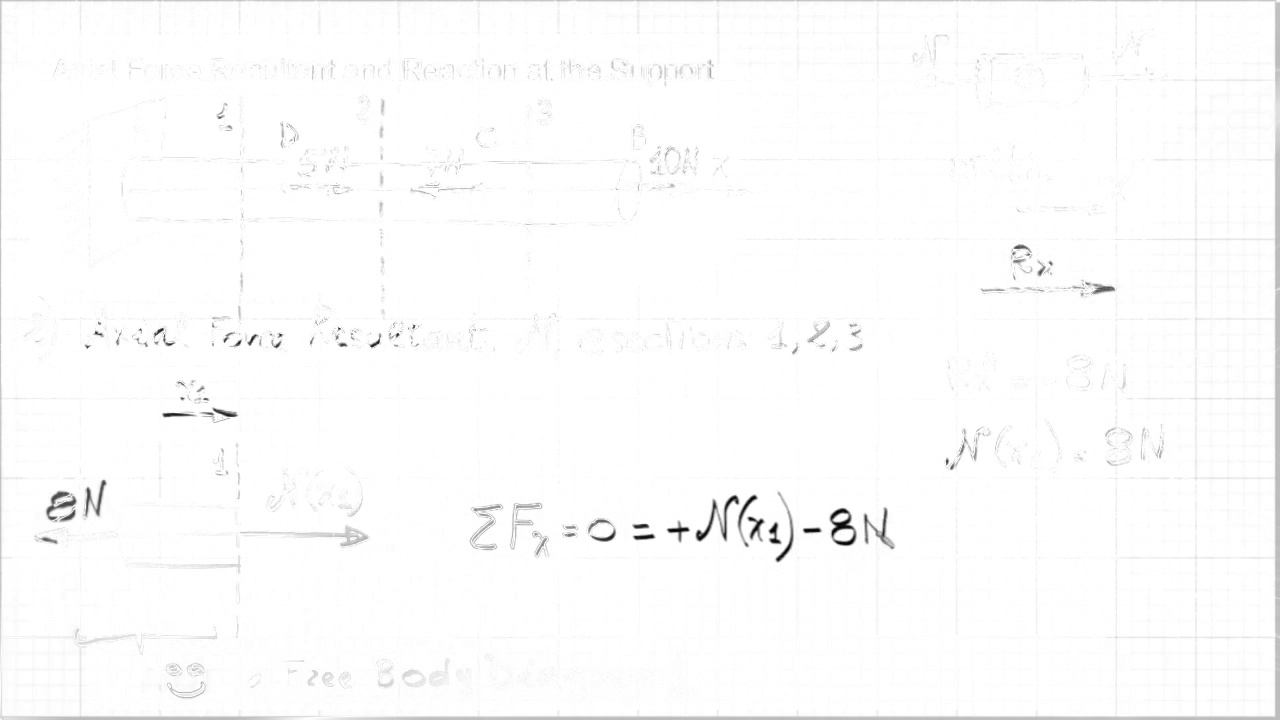 Axial Force Resultant and Reaction at the Support
N N
1 2 3
D C B
5N 7N 10N x
Rx
2) Axial Force Resultant, N, @ sections 1,2,3
x1
Rx = -8N
N(x1) = 8N
1
8N N(x1)
ΣFx = 0 = +N(x1) - 8N
Free Body Diagram